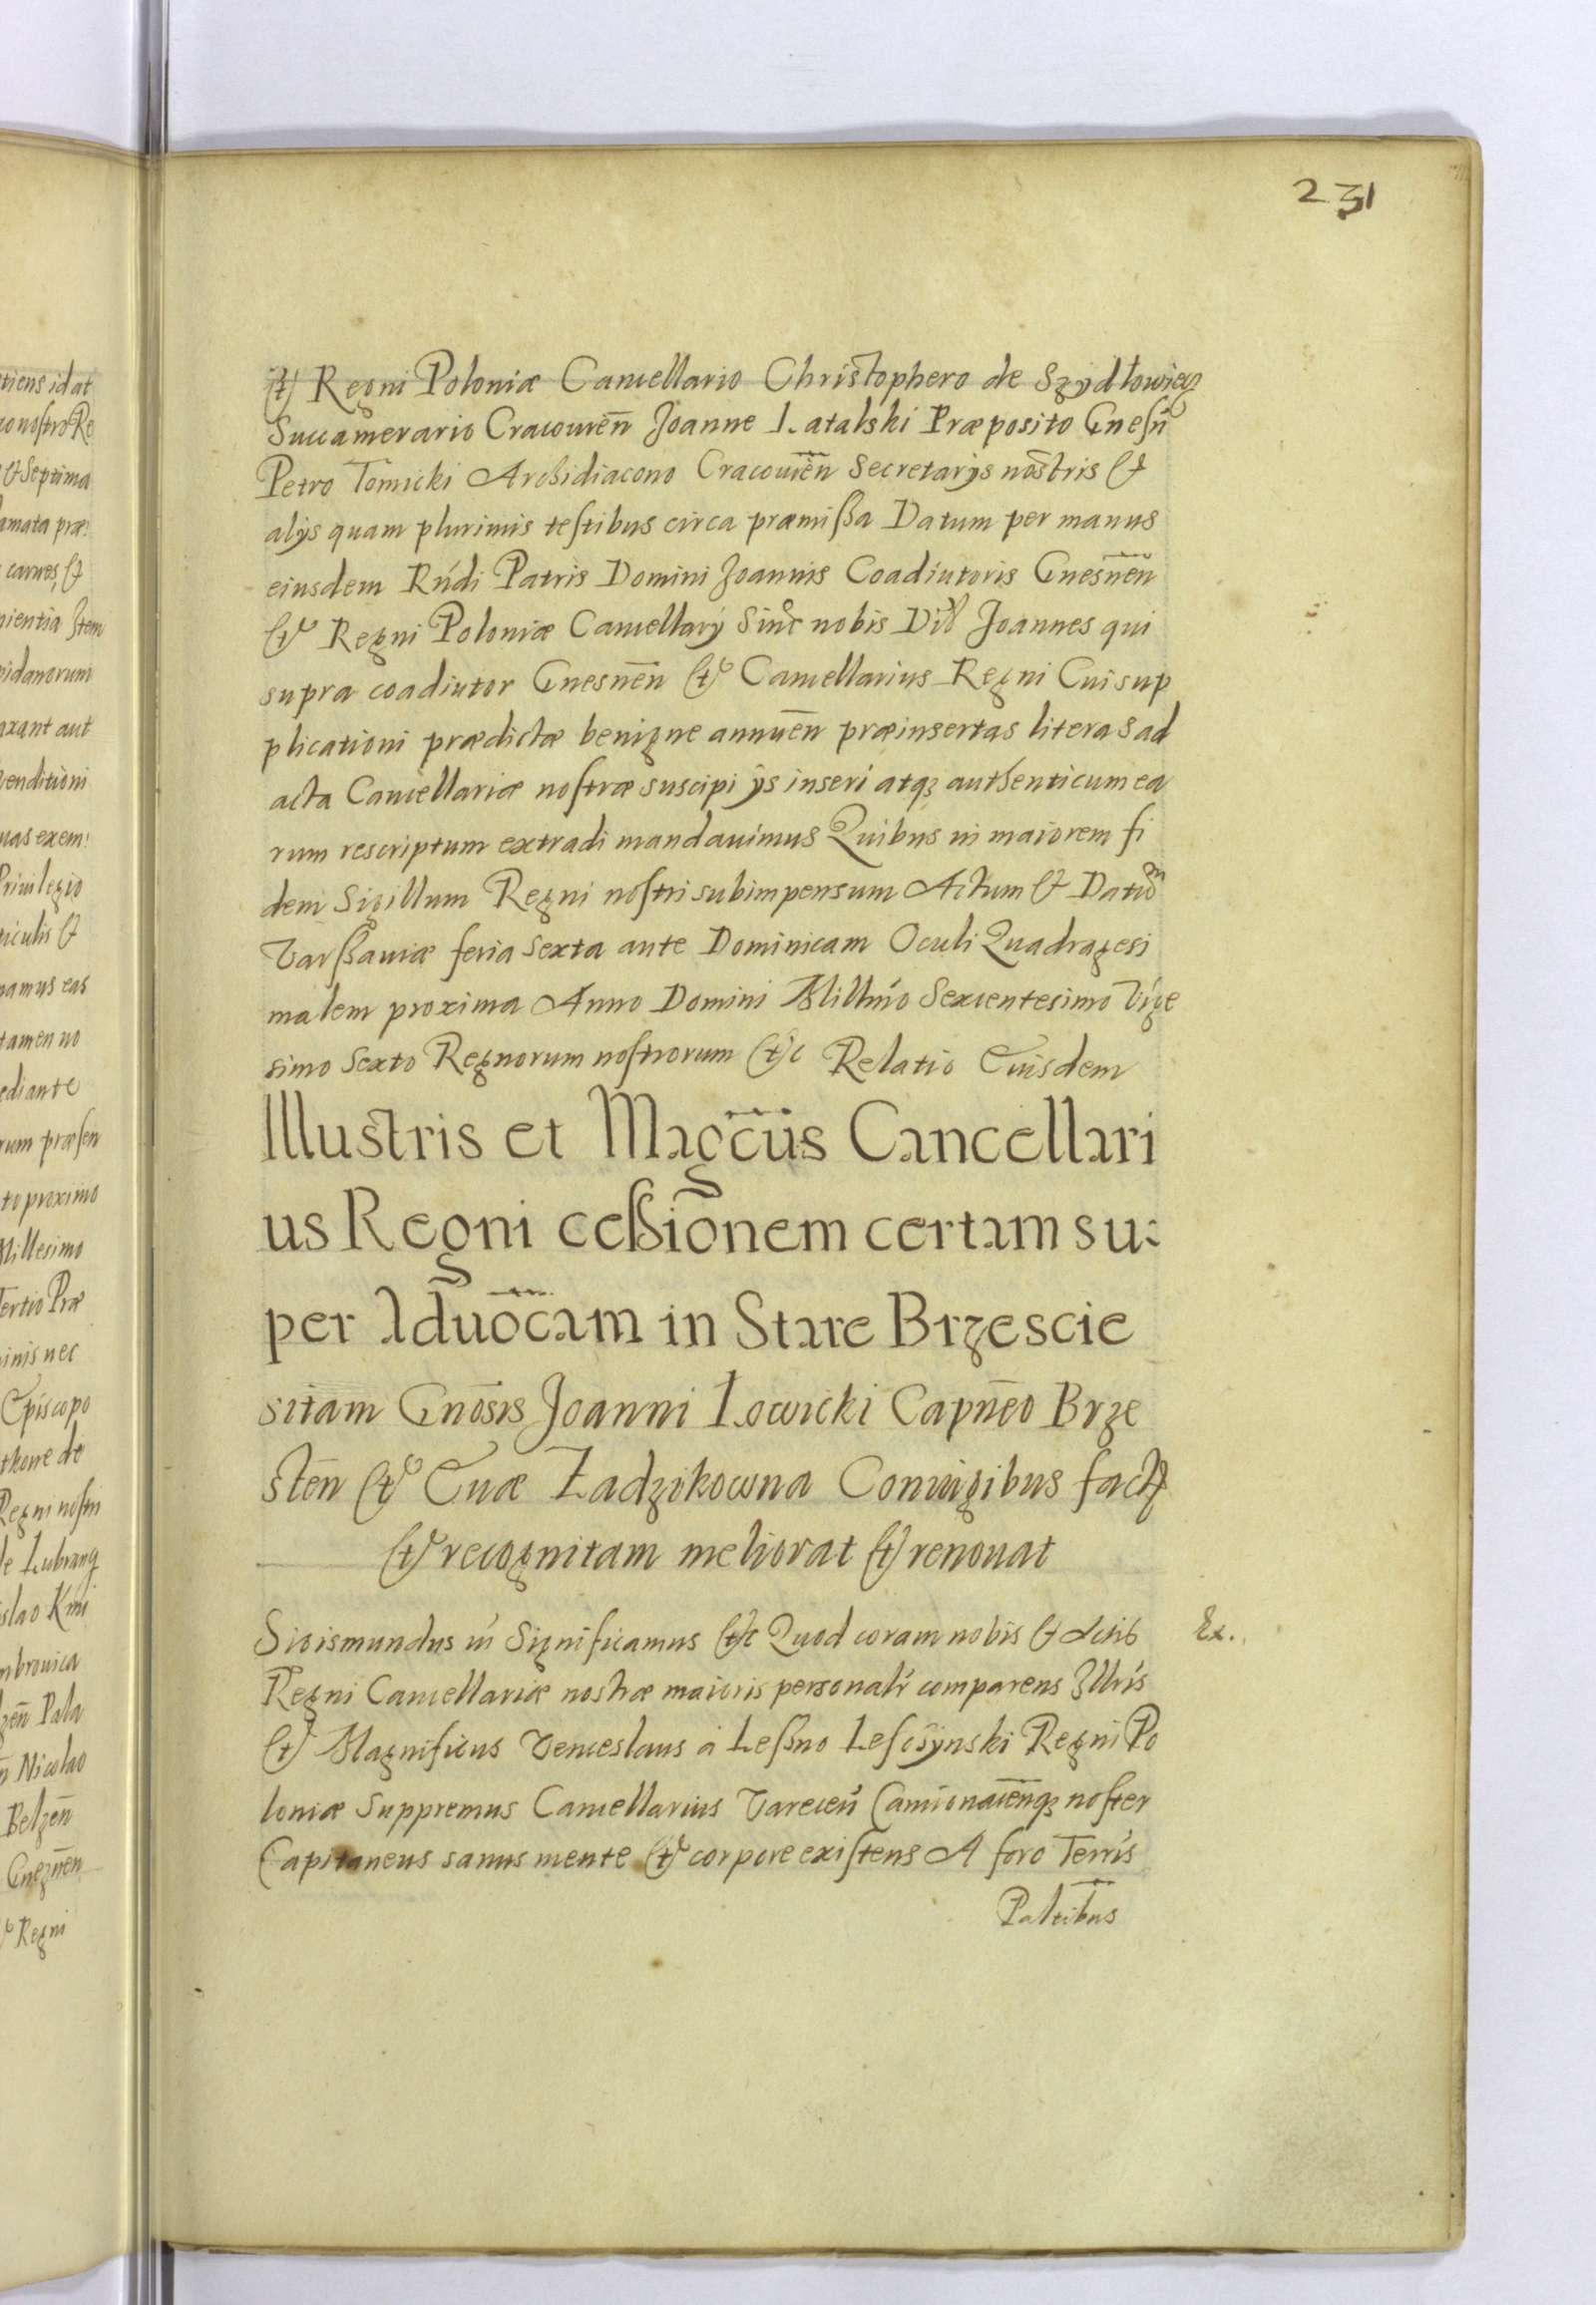 231
et Regni Poloniæ Cancellario Christophero de Szydłowiecz
Succamerario Cracouieñ Joanne Latalski Præposito Gnesń
Petro Tomicki Archidiacono Cracouieñ Secretarÿs nostris et
alÿs quam plurimis testibus circa præmissa Datum per manus
eiusdem Rńdi Patris Domini Joannis Coadiutoris Gnesneñ
et Regni Poloniæ Cancellarÿ Joannes qui
supra coadiutor Gnesneñ et Cancellarius Regni Cui sup
plicationi prædictæ benigne annueñ præinsertas literas ad
acta Cancellariæ nostræ suscipi ÿs inseri atq3 authenticum ea
rum rescriptum extradi mandauimus Quibus in maiorem fi
dem Sigillum Regni nostri subimpensum Actum et Datum
Varssauiæ feria Sexta ante Dominicam Oculi Quadragesi
malem proxima Anno Domini Millmo Sexcentesimo Vige
simo Sexto Regnorum nostrorum etc Relatio Eiusdem
Illustris et Magcus Cancellari
us Regni cessionem certam su:
per Aduocam in Stare Brzescie
sitam Gnosis Joanni Łowicki Capneo Brze
steñ et Euæ Zadzikowna Coniugibus fact
et recognitam meliorat et renouat
Sigismundus iń Significamus etc Quod coram nobis et Actis
Ex.
Regni Cancellariæ nostræ maioris personalr comparens Illris
et Magnificus Venceslaus à Lessno Lescsÿnski Regni Po
loniæ Suppremus Cancellarius Vareceń Camionacenq3 noster
Capitaneus sanus mente et corpore existens A foro Terris
Paltibus
tiens id at
et Septima
amata præ:
carnes, et
nientia Item
pidanorum
axant aut
venditioni
uas exem:
Priuilegio
ticulis et
namus eas
tamen no
ediante
rum præsen
to proximo
Millesimo
Tertio Præ
inis nec
Episcopo
Regni nostri
de Lubrancz
slao Kmi
mbrouica
zeñ Pala
ñ Nicolao
Belzeñ
Gnezneñ
et Regni